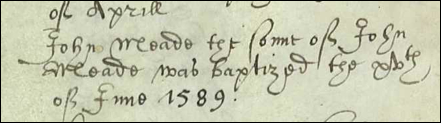 of Aprill
John Meade the sonne of John
Meade was baptized the xvth
of June 1589.